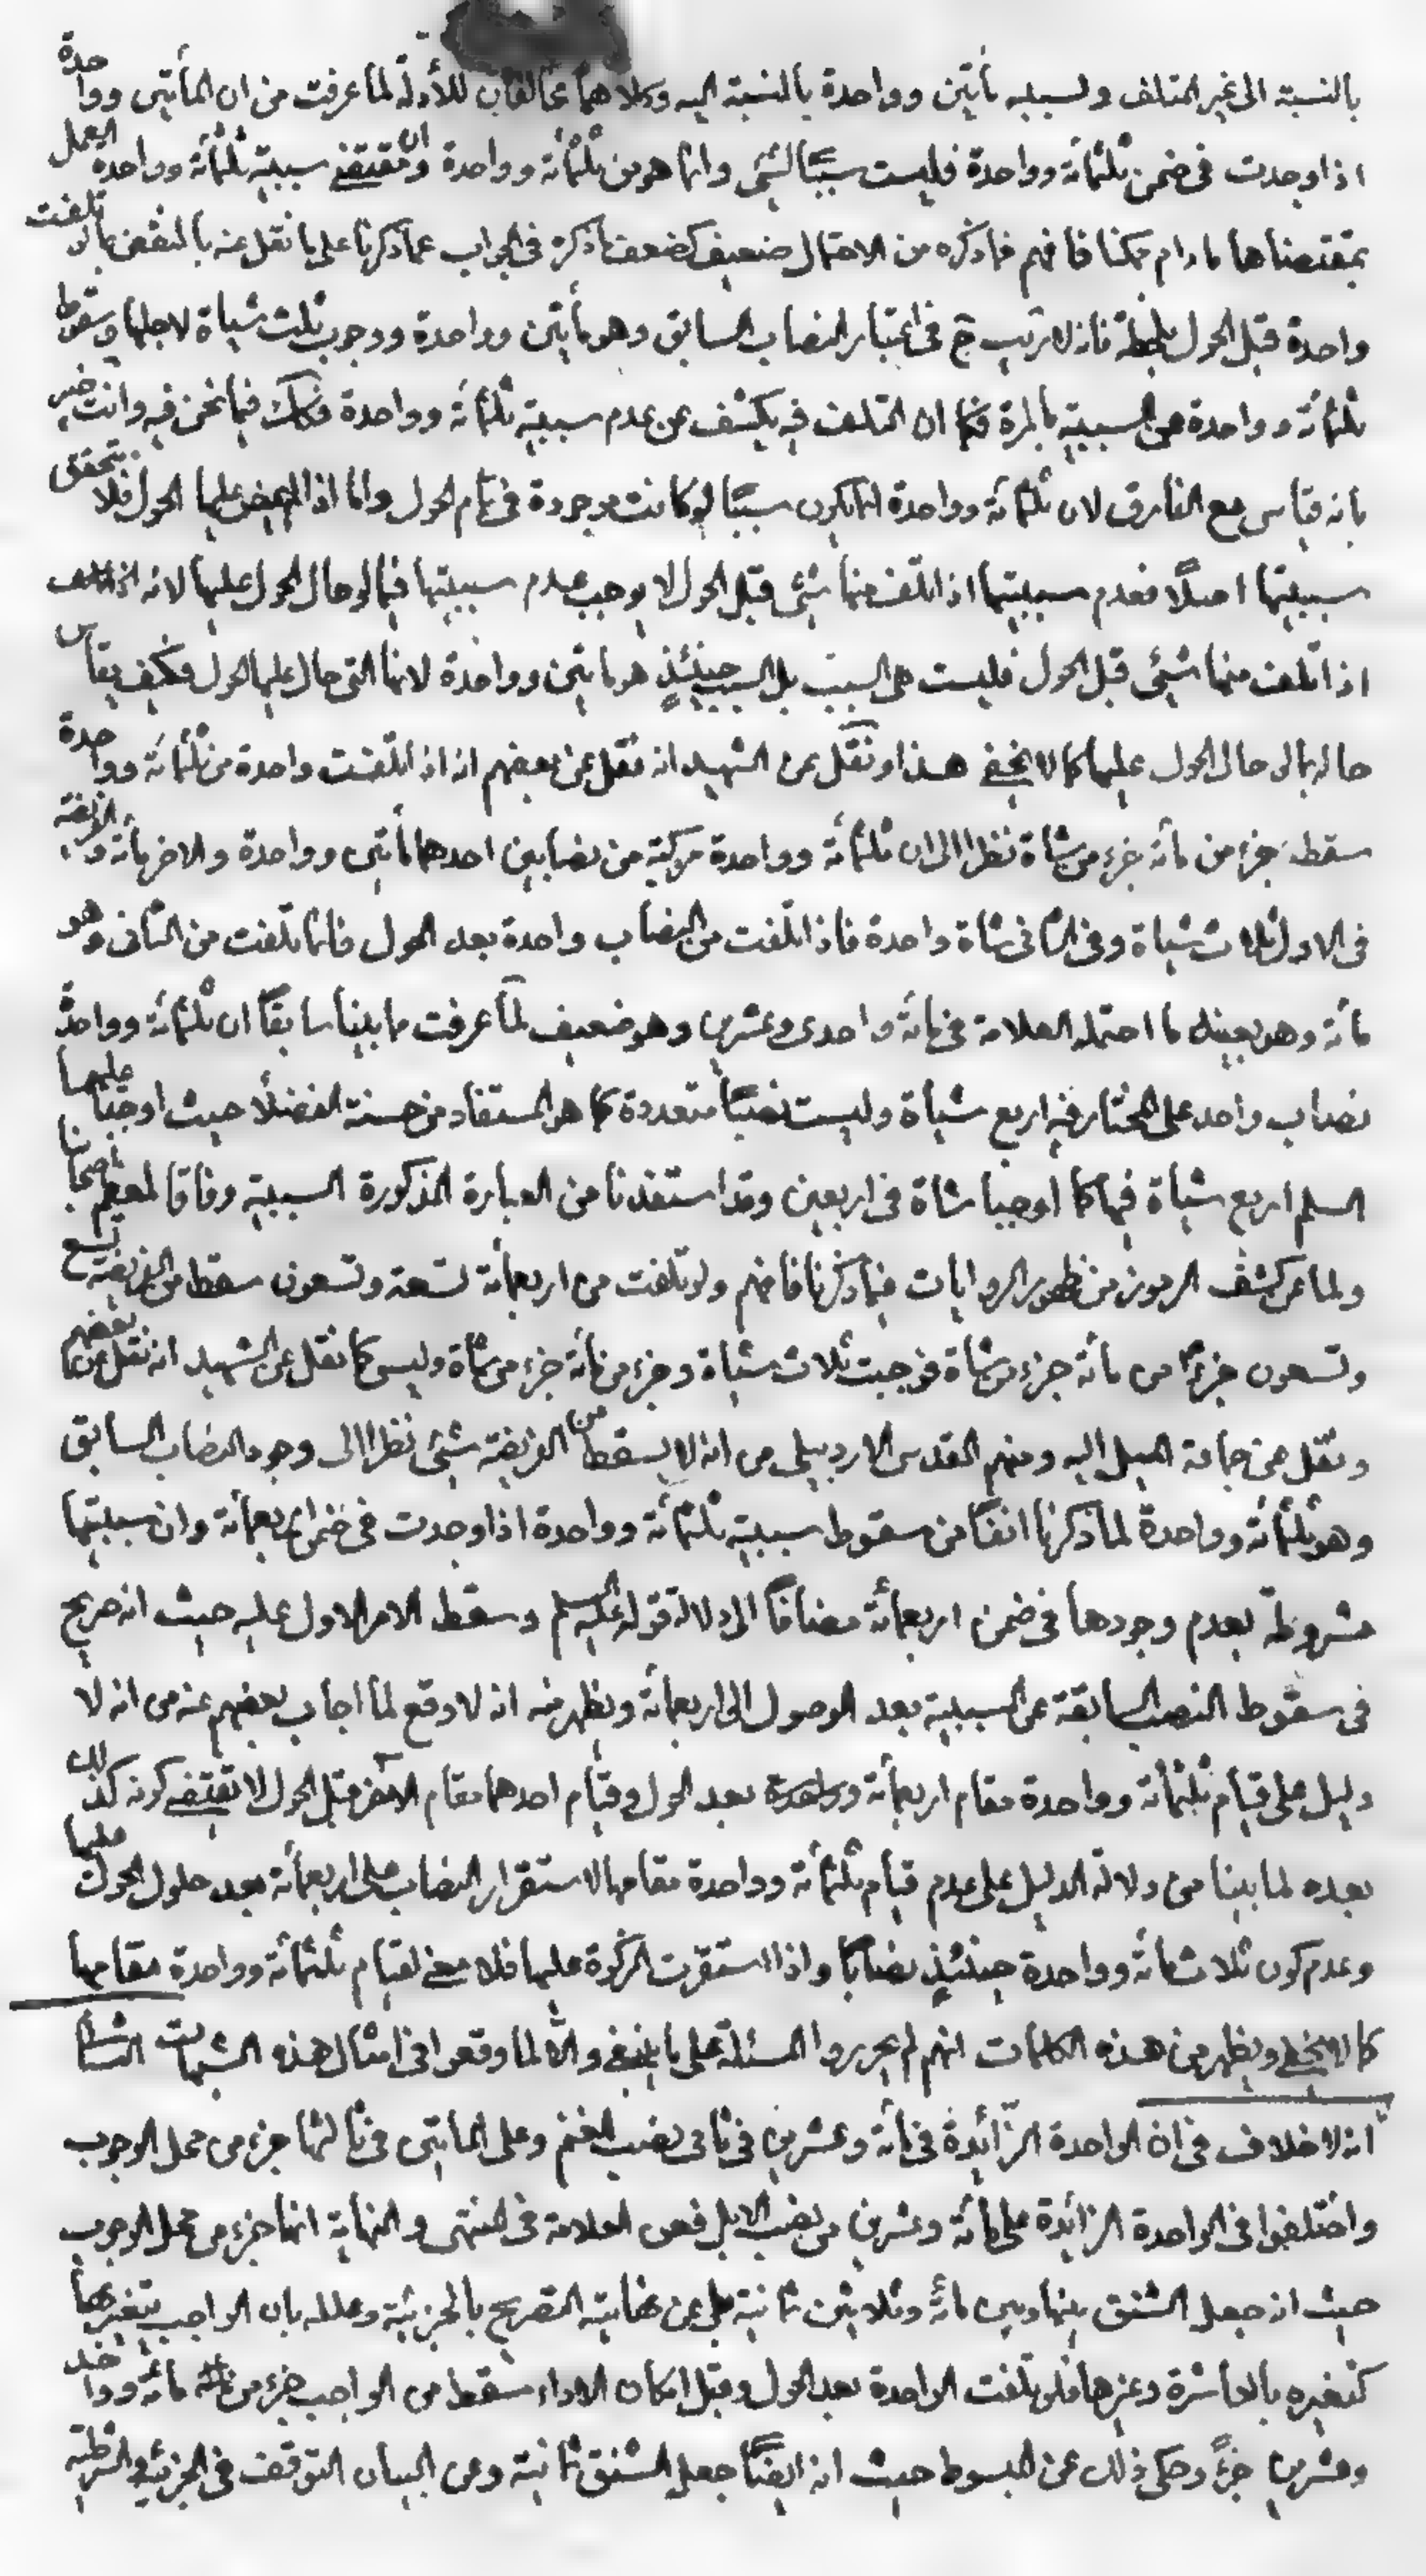 بالنسبة الى غير المتلف ولسببه مأتين وواحدة بالنسبة اليه وكلاهما مخالفان للأدلة لما عرفت من ان المأتين وواحدة
اذا وجدت فى ضمن ثلثمأته وواحدة فليست سببًا لشئ وانما هو من ثلثمأئة وواحدة وان مقتضى سببية ثلثمأئة وواحدة العمل
بمقتضاها ما دام ممكنا فافهم فما ذكره من الاحتمال ضعيف كضعف ما ذكره فى الجواب عما ذكرنا على ما نقل عنه بالنقض بما لو تلفت
واحدة قبل الحول بلحظة فانه لا ريب ح فى اعتبار النصاب السابق وهو مأتين وواحدة ووجوب ثلث شياة لاجلها وسقوط
ثلثمأئة وواحدة عن السببية بالمرة فكما ان التلف فيه يكشف عن عدم سببية ثلثمأئة وواحدة فكك فيما نحن فيه وانت خبير
بانه قياس مع الفارق لان ثلثمأئة وواحدة انما يكون سببًا لو كانت موجودة فى تمام الحول واما اذا لم يمض عليها الحول فلا يتحقق
سببيتها اصلًا فعدم سببيتها اذا تلف منها شئ قبل الحول لا يوجب عدم سببيتها فيما لو حال الحول عليها لانه
اذا تلفت منها شئ قبل الحول فليست هى السبب بل السبب حينئذٍ هو مأتين وواحدة لانها التى حال عليها الحول فكيف يقاس
حاله بما لو حال الحول عليها كما لا يخفى هذا ونقل عن الشهيد انه نقل عن بعضهم انه اذا تلفت واحدة من ثلثمأئة وواحدة
سقط جزء من مأئة جزء من شاة نظرا الى ان ثلثمأئة وواحدة مركبة من نصابين احدهما مأتين وواحدة والاخر مأئة والفريضة
فى الاول ثلاث شياة وفى الثانى شاة واحدة فاذا تلفت من النصاب واحدة بعد الحول فانما تلفت من الثانى وهو
مأئة وهو بعينه ما احتمله العلامة فى مأئة واحدى وعشرين وهو ضعيف لما عرفت مما بينا سابقًا ان ثلثمأئة وواحدة
نصاب واحد على المختار فيه اربع شياة وليست نصبًا متعددة كما هو المستفاد من حسنة الفضلاء حيث اوجبا عليهما
السلم اربع شياة فيها كما اوجبا شاة فى اربعين وقد استفدنا من العبارة المذكورة السببية وفاقا لمعظم اصحابنا
ولما عن كشف الرموز من ظهور الروايات فيما ذكرنا فافهم ولو تلفت من اربعمأئة تسعة وتسعون سقط من الفريضة تسع
وتسعون جزءً من مأئة جزء من شاة فوجبت ثلاث شياة وجزء من مأئة جزء من شاة وليس كما نقل عن الشهيد انه نقل عن بعضهم
ونقل عن جماعة الميل اليه ومنهم المقدس الاردبيلى من انه لا يسقط من الفريضة شئ نظرا الى وجود النصاب السابق
وهو ثلثمأئة وواحدة لما ذكرنا انفًا من سقوط سببية ثلثمأئة وواحدة اذا وجدت فى ضمن اربعمأئة وان سببيتها
مشروطة بعدم وجودها فى ضمن اربعمأئة مضافًا الى دلالة قوله عليه السلم وسقط الامر الاول عليه حيث انه صريح
فى سقوط النصب السابقة عن السببية بعد الوصول الى اربعمأئة ويظهر منه انه لا وقع لما اجاب بعضهم عنه من انه لا
دليل على قيام ثلثمأئة وواحدة مقام اربعمأئة وواحدة بعد الحول وقيام احدهما مقام الآخر قبل الحول لا تقتضى كونه كذلك
بعده لما بينا من دلالة الدليل على عدم قيام ثلثمأئة وواحدة مقامها لاستقرار النصاب على اربعمأئة بعد حلول الحول عليها
وعدم كون ثلاثمأئة وواحدة حينئذٍ نصابًا واذا استقرت الزكوة عليها فلا معنى لقيام ثلثمأئة وواحدة مقامها
كما لا يخفى ويظهر من هذه الكلمات انهم لم يحرروا المسئلة على ما ينبغى والا لما وقعوا فى امثال هذه الشبهات
انه لا خلاف فى ان الواحدة الزائدة فى مأئة وعشرين فى ثانى نصب الغنم وعلى المأتين فى ثالثها جزء من محل الوجوب
واختلفوا فى الواحدة الزائدة على مأئة وعشرين من نصب الابل فعن العلامة فى المنتهى والنهاية انها جزء من محل الوجوب
حيث انه جعل الشنق بينها وبين مأئة وثلاثين ثمانية بل عن نهايته التصريح بالجزئية وعلله بان الواجب يتغير بها
كتغيره بالعاشرة وغيرها فلو تلفت الواحدة بعد الحول وقبل امكان الاداء سقط من الواجب جزء من مأئة وواحد
وعشرين جزءً وحكى ذلك عن المبسوط حيث انه ايضًا جعل الشنق ثمانية وعن البيان التوقف فى الجزئية والشرطية